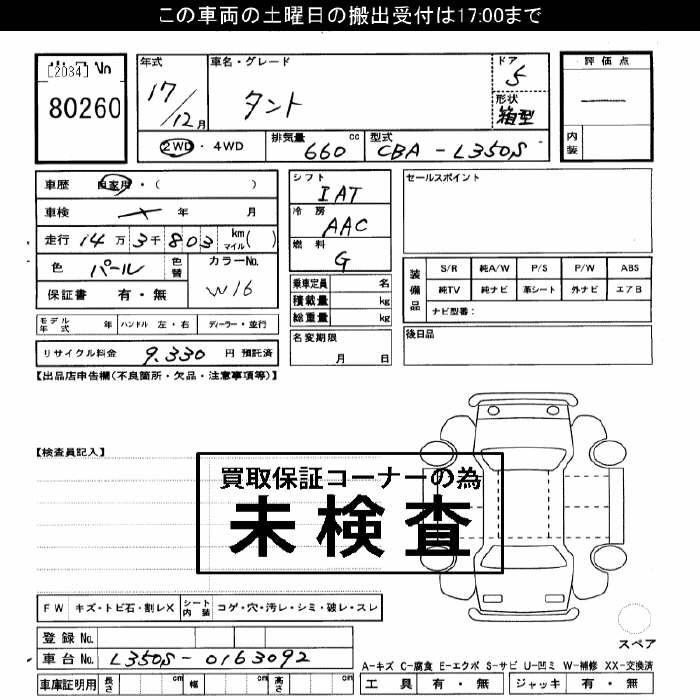 この車両の土曜日の搬出受付は17:00まで
[2034] No
80260
年式
17/12月
車名・グレード
タント
ドア
5
形状
箱型
評価点
内装
2WD・4WD
排気量
660 cc
型式
CBA-L350S
車歴 自家用・( )
車検 年 月
走行 14万3千803 km マイル( )
色 パール 色替
カラーNo.
W16
保証書 有・無
シフト
IAT
冷房
AAC
燃料
G
乗車定員 名
積載量 kg
総重量 kg
名変期限
月 日
セールスポイント
装備品
S/R 純A/W P/S P/W ABS
純TV 純ナビ 革シート 外ナビ エアB
ナビ型番:
後日品
モデル年式 年 ハンドル 左・右 ディーラー・並行
リサイクル料金 9,330 円 預託済
【出品店申告欄(不良箇所・欠品・注意事項等)】
【検査員記入】
買取保証コーナーの為
未検査
FW キズ・トビ石・割レX シート内装 コゲ・穴・汚レ・シミ・破レ・スレ
登録No.
車台No. L350S-0163092
車庫証明用 長さ cm 幅 cm 高さ cm
スペア
A-キズ C-腐食 E-エクボ S-サビ U-凹ミ W-補修 XX-交換済
工具 有・無 ジャッキ 有・無